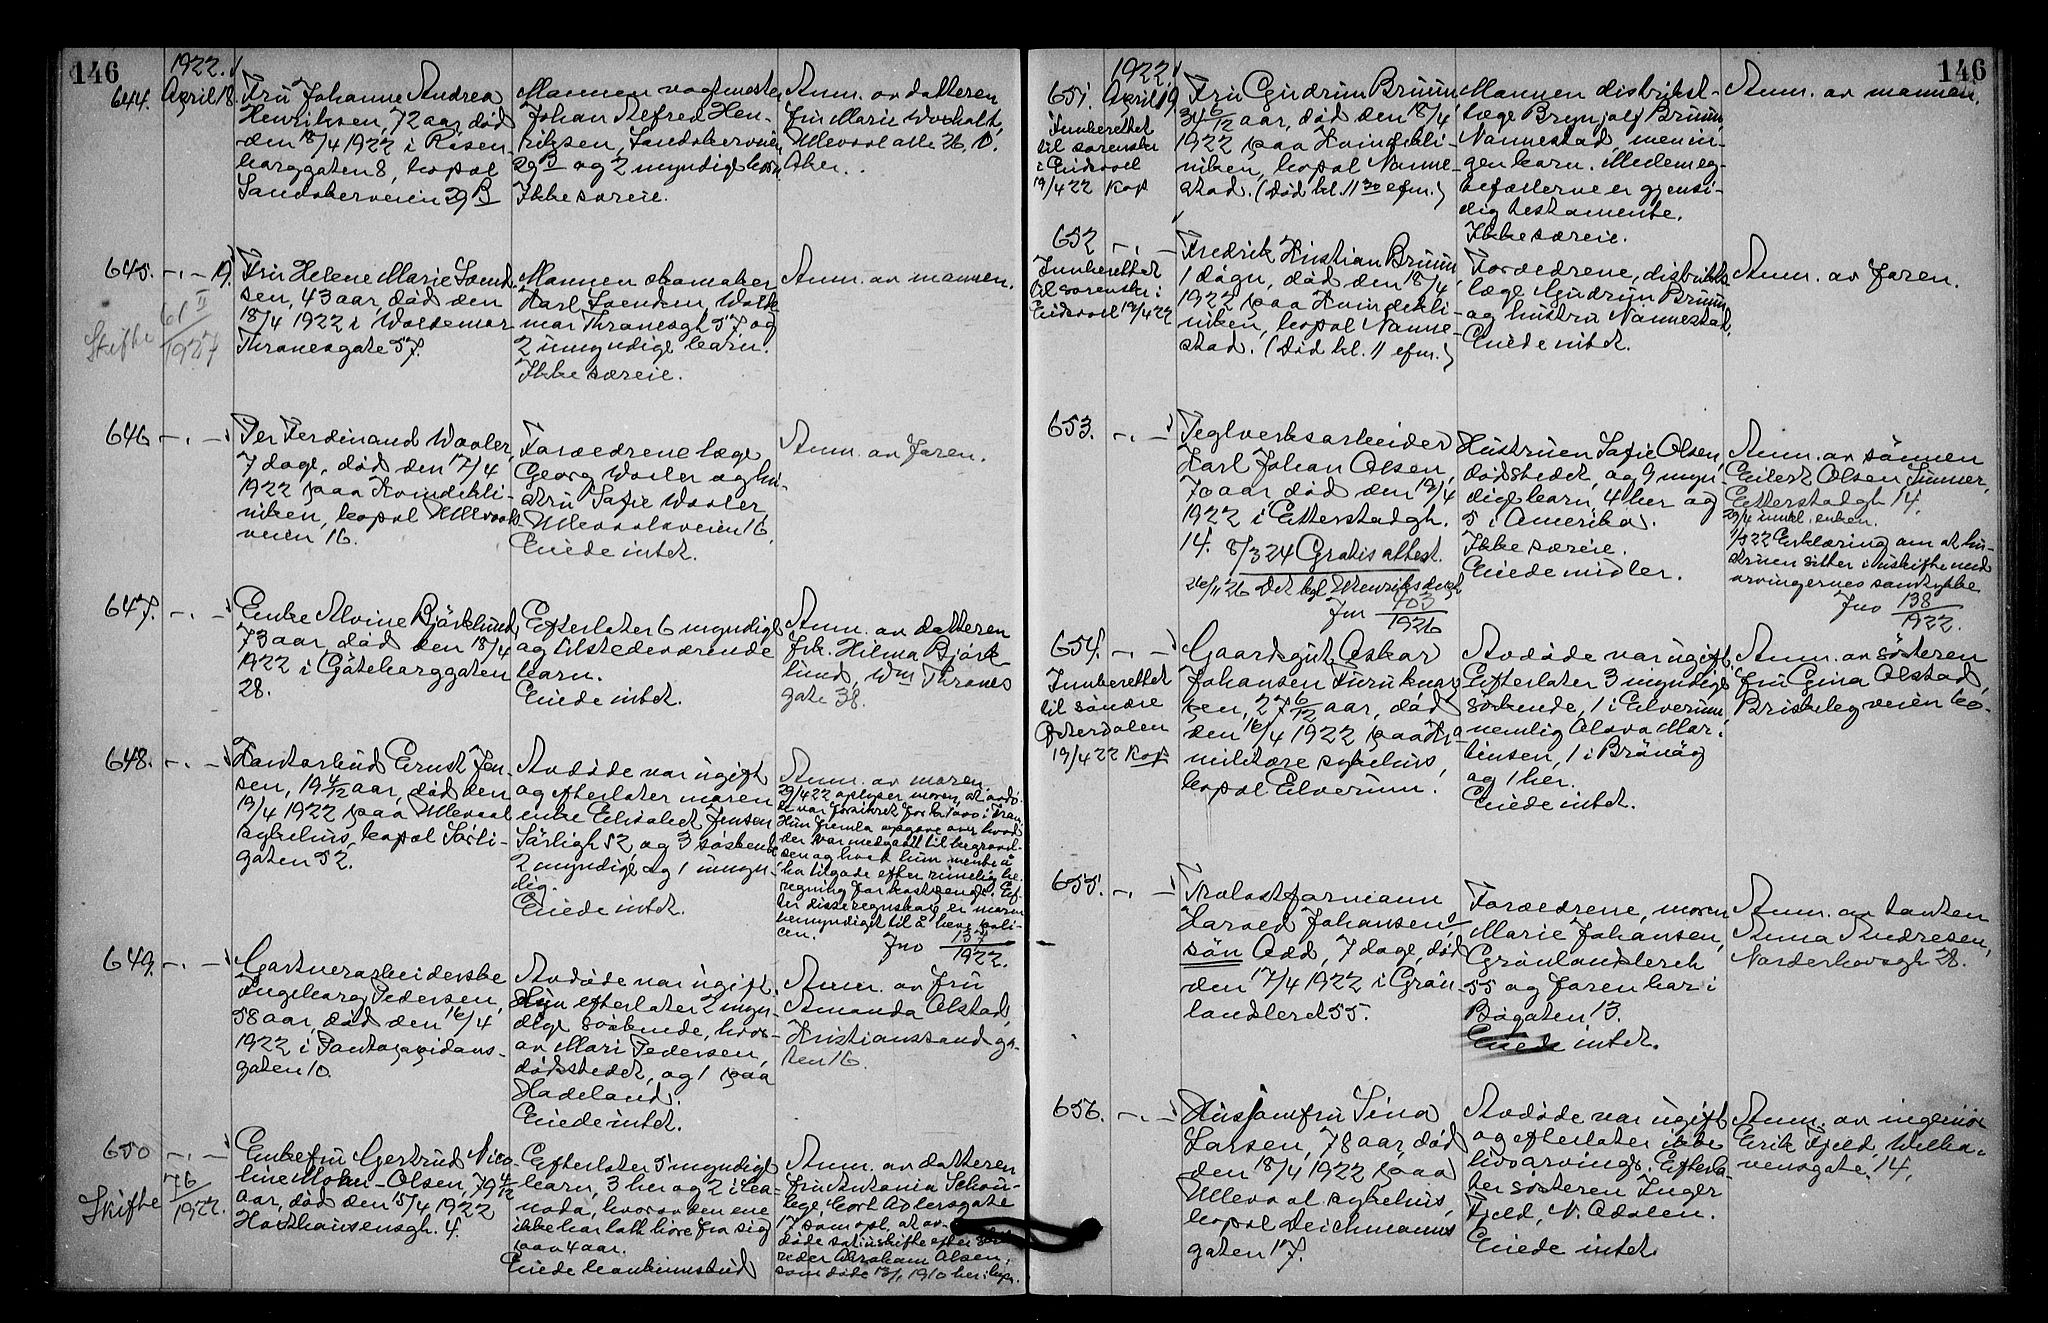 146
1922.
644. April 18.
Fru Johanne Andrea
Henriksen, 72 aar, død
den 18/4 1922 i Rosen-
borggaten 8, bopæl
Sandakerveien 29 B
Mannen vogtmester
Johan Alfred Hen-
riksen, Sandakerveien
29 B og 2 myndige barn.
Ikke særeie.
Anm. av datteren
fru Marie
Ullevaal alle 26, 
Aker.
645. -"- 19.
Skifte 61 II/1927
Fru Helene Marie
sen, 43 aar, død den
18/4 1922 i Waldemar
Thranesgate 57.
Mannen skomaker
Karl Wolde-
mar Thranesgt 57 og
2 umyndige barn.
Ikke særeie.
Anm. av mannen.
646 -"-
Per Ferdinand Waaler,
7 dage, død den 17/4
1922 paa Kvindekli-
niken, bopæl Ullevaals-
veien 16.
Forældrene læge
Georg Waaler og hu-
stru Sofie Waaler,
Ullevaalsveien 16.
Eiede intet.
Anm. av faren.
647. -"-
Enke Alvine Bjørklund,
73 aar, død den 18/4
1922 i Gøteborggaten
28.
Efterlater 6 myndige
og tilstedeværende
barn.
Eiede intet.
Anm. av datteren
frk. Hilma Bjørk-
lund, Wm Thranes
gate 38.
648. -"-
Kontorbud Ernst Jen-
sen, 19 4/12 aar, død den
19/4 1922 paa Ullevaal
sykehus, bopæl Sørli-
gaten 52.
Avdøde var ugift
og efterlater moren
enke Elisabet Jensen
Sørligt 52, og 3 søskende
2 myndige og 1 umyn-
dig.
Eiede intet.
Anm. av moren.
29/4 22 oplyser moren, at avdø-
de var forsikret for
Hun fremla opgave over hvad
der var medgaatt til begravel-
sen og hvad hun mente å
ha tilgode efter rimelig be-
regning for kostpenge. Ef-
ter disse regnskap er moren
bemyndiget til å heve poli-
cen.
Jno 137/1922.
649. -"-
Gartnerarbeiderske
Ingeborg Pedersen,
58 aar, død den 16/4
1922 i Pontoppidans-
gaten 10.
Avdøde var ugift.
Hun efterlater 2 myn-
dige søskende, hvor-
av Mari Pedersen,
dødsstedet, og 1 paa
Hadeland.
Eiede intet.
Anm. av fru
Amanda Olstad,
Kristianssands ga-
ten 16.
650 -"-
Skifte 76/1922.
Enkefru Gjertrud Nico-
line Mohn-Olsen, 79 4/12
aar, død den 15/4 1922
Harthausensgt. 4.
Efterlater 5 myndige
barn, 3 her og 2 i Ca-
nada, hvorav den ene
ikke har latt høre fra sig
paa 4 aar.
Eiede
Anm. av datteren
fru Antonia Schøn-
Cort Adlersgate
17 som opl. at av-
døde sat i uskifte efter
Abraham Olsen,
som døde 13/1 1910 her i byen.
146
1922
651. April 19
Innberettet
til sorensk.
i Eidsvoll
19/4 22 Kop
Fru Gudrun Bruun
34 6/12 aar, død den 18/4
1922 paa Kvindekli-
niken, bopæl Nanne-
stad. (Død kl. 11 30 efm.)
Mannen distrikts-
læge Brynjolf Bruun,
Nannestad, men in-
gen barn. Mellem eg-
tefællerne er gjensi-
dig testamente.
Ikke særeie.
Anm. av mannen.
652 -"-
Innberettet
til sorensk. i
Eidsvoll 19/4 22
Fredrik Kristian Bruun,
1 døgn, død den 18/4
1922 paa Kvindekli-
niken, bopæl Nanne-
stad. (Død kl. 11 efm.)
Forældrene, distrikts-
læge Gudrun Bruun
og hustru Nannestad.
Eiede intet.
Anm. av faren.
653. -"-
Teglverksarbeider
Karl Johan Olsen,
70 aar, død den 19/4
1922 i Etterstadgt.
14. 8/3 24 Gratis attest.
26/11 26
Jnr 403/1926
Hustruen Sofie Olsen,
dødsstedet, og 9 myn-
dige barn, 4 her og
5 i Amerika.
Ikke særeie.
Eiede midler.
Anm. av sønnen
Eilert Olsen
Etterstadgt 14.
29/4 innkl. enken.
1/5 22 Erklæring om at hu-
struen sitter i uskifte med
arvingernes samtykke
Jno 138/1922.
654. -"-
Innberettet
til søndre
Østerdalen
19/4 22 Kop
Gaardsgut Oskar
Johansen Furuknap-
pen, 27 6/12 aar, død
den 16/4 1922 paa
militære sykehus,
bopæl Elverum.
Avdøde var ugift.
Efterlater 3 myndige
søskende, 1 i Elverum,
nemlig Olava Mar-
tinsen, 1 i
og 1 her.
Eiede intet.
Anm. av søsteren
fru Gina Olstad,
Briskebyveien 60.
655. -"-
Trælastformann
Harald Johansens
søn Odd, 7 dage, død
den 17/4 1922 i Grøn-
landsleret 55.
Forældrene, moren
Marie Johansen,
Grønlandsleret
55 og faren bor i
Bøgaten 13.
Eiede intet.
Anm. av tanten
Anna Andresen,
Norderhovsgt 28.
656. -"-
Husjomfru Sina
Larsen, 78 aar, død
den 18/4 1922 paa
Ullevaal sykehus,
bopæl Deichmanns
gaten 17.
Avdøde var ugift
og efterlater ikke
livsarving. Efterla-
ter søsteren Inger
Fjeld, N. Odalen.
Eiede intet.
Anm. av ingeniør
Erik Fjeld, Welha-
vensgate 14.